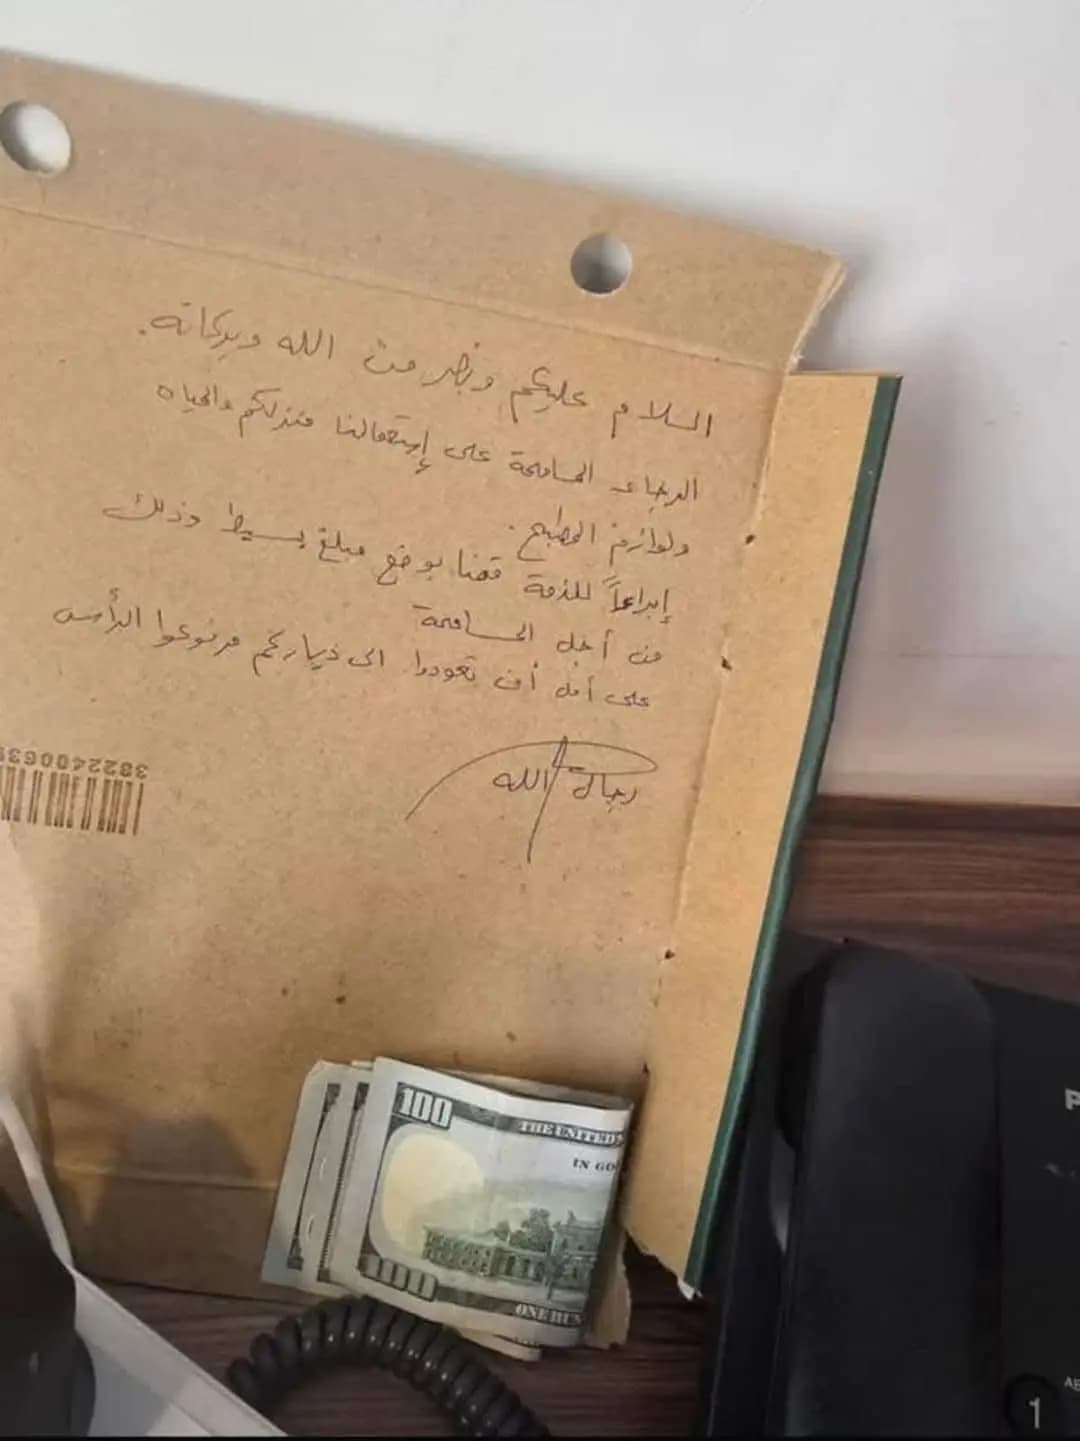 السلام عليكم ونصر من الله وبركاته.
الرجاء المسامحة على إستعمالنا منزلكم والمياه
ولوازم المطبخ.
إبراءاً للذمة قمنا بوضع مبلغ بسيط وذلك
من أجل المسامحة
على أمل أن تعودوا الى دياركم مرفوعوا الرأس
رجال الله
3822400639
100
THE UNITED
IN GO
100
ONE HUN
P
AE
1